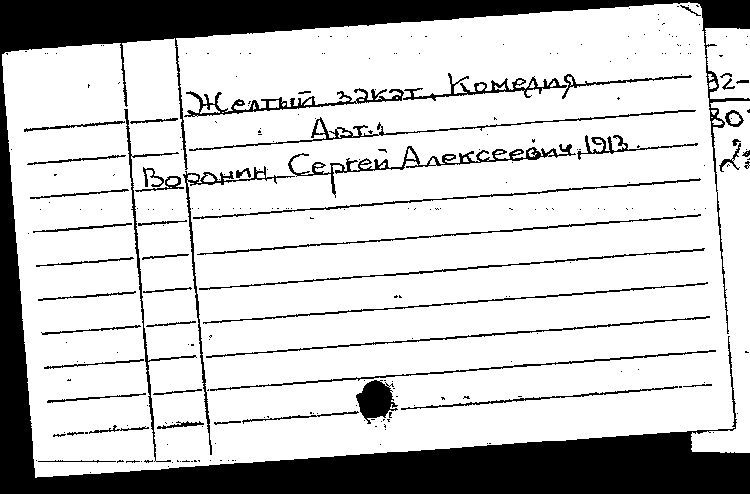 Желтый закат. Комедия
Авт.:
Воронин, Сергей Алексеевич, 1913.
92-
80